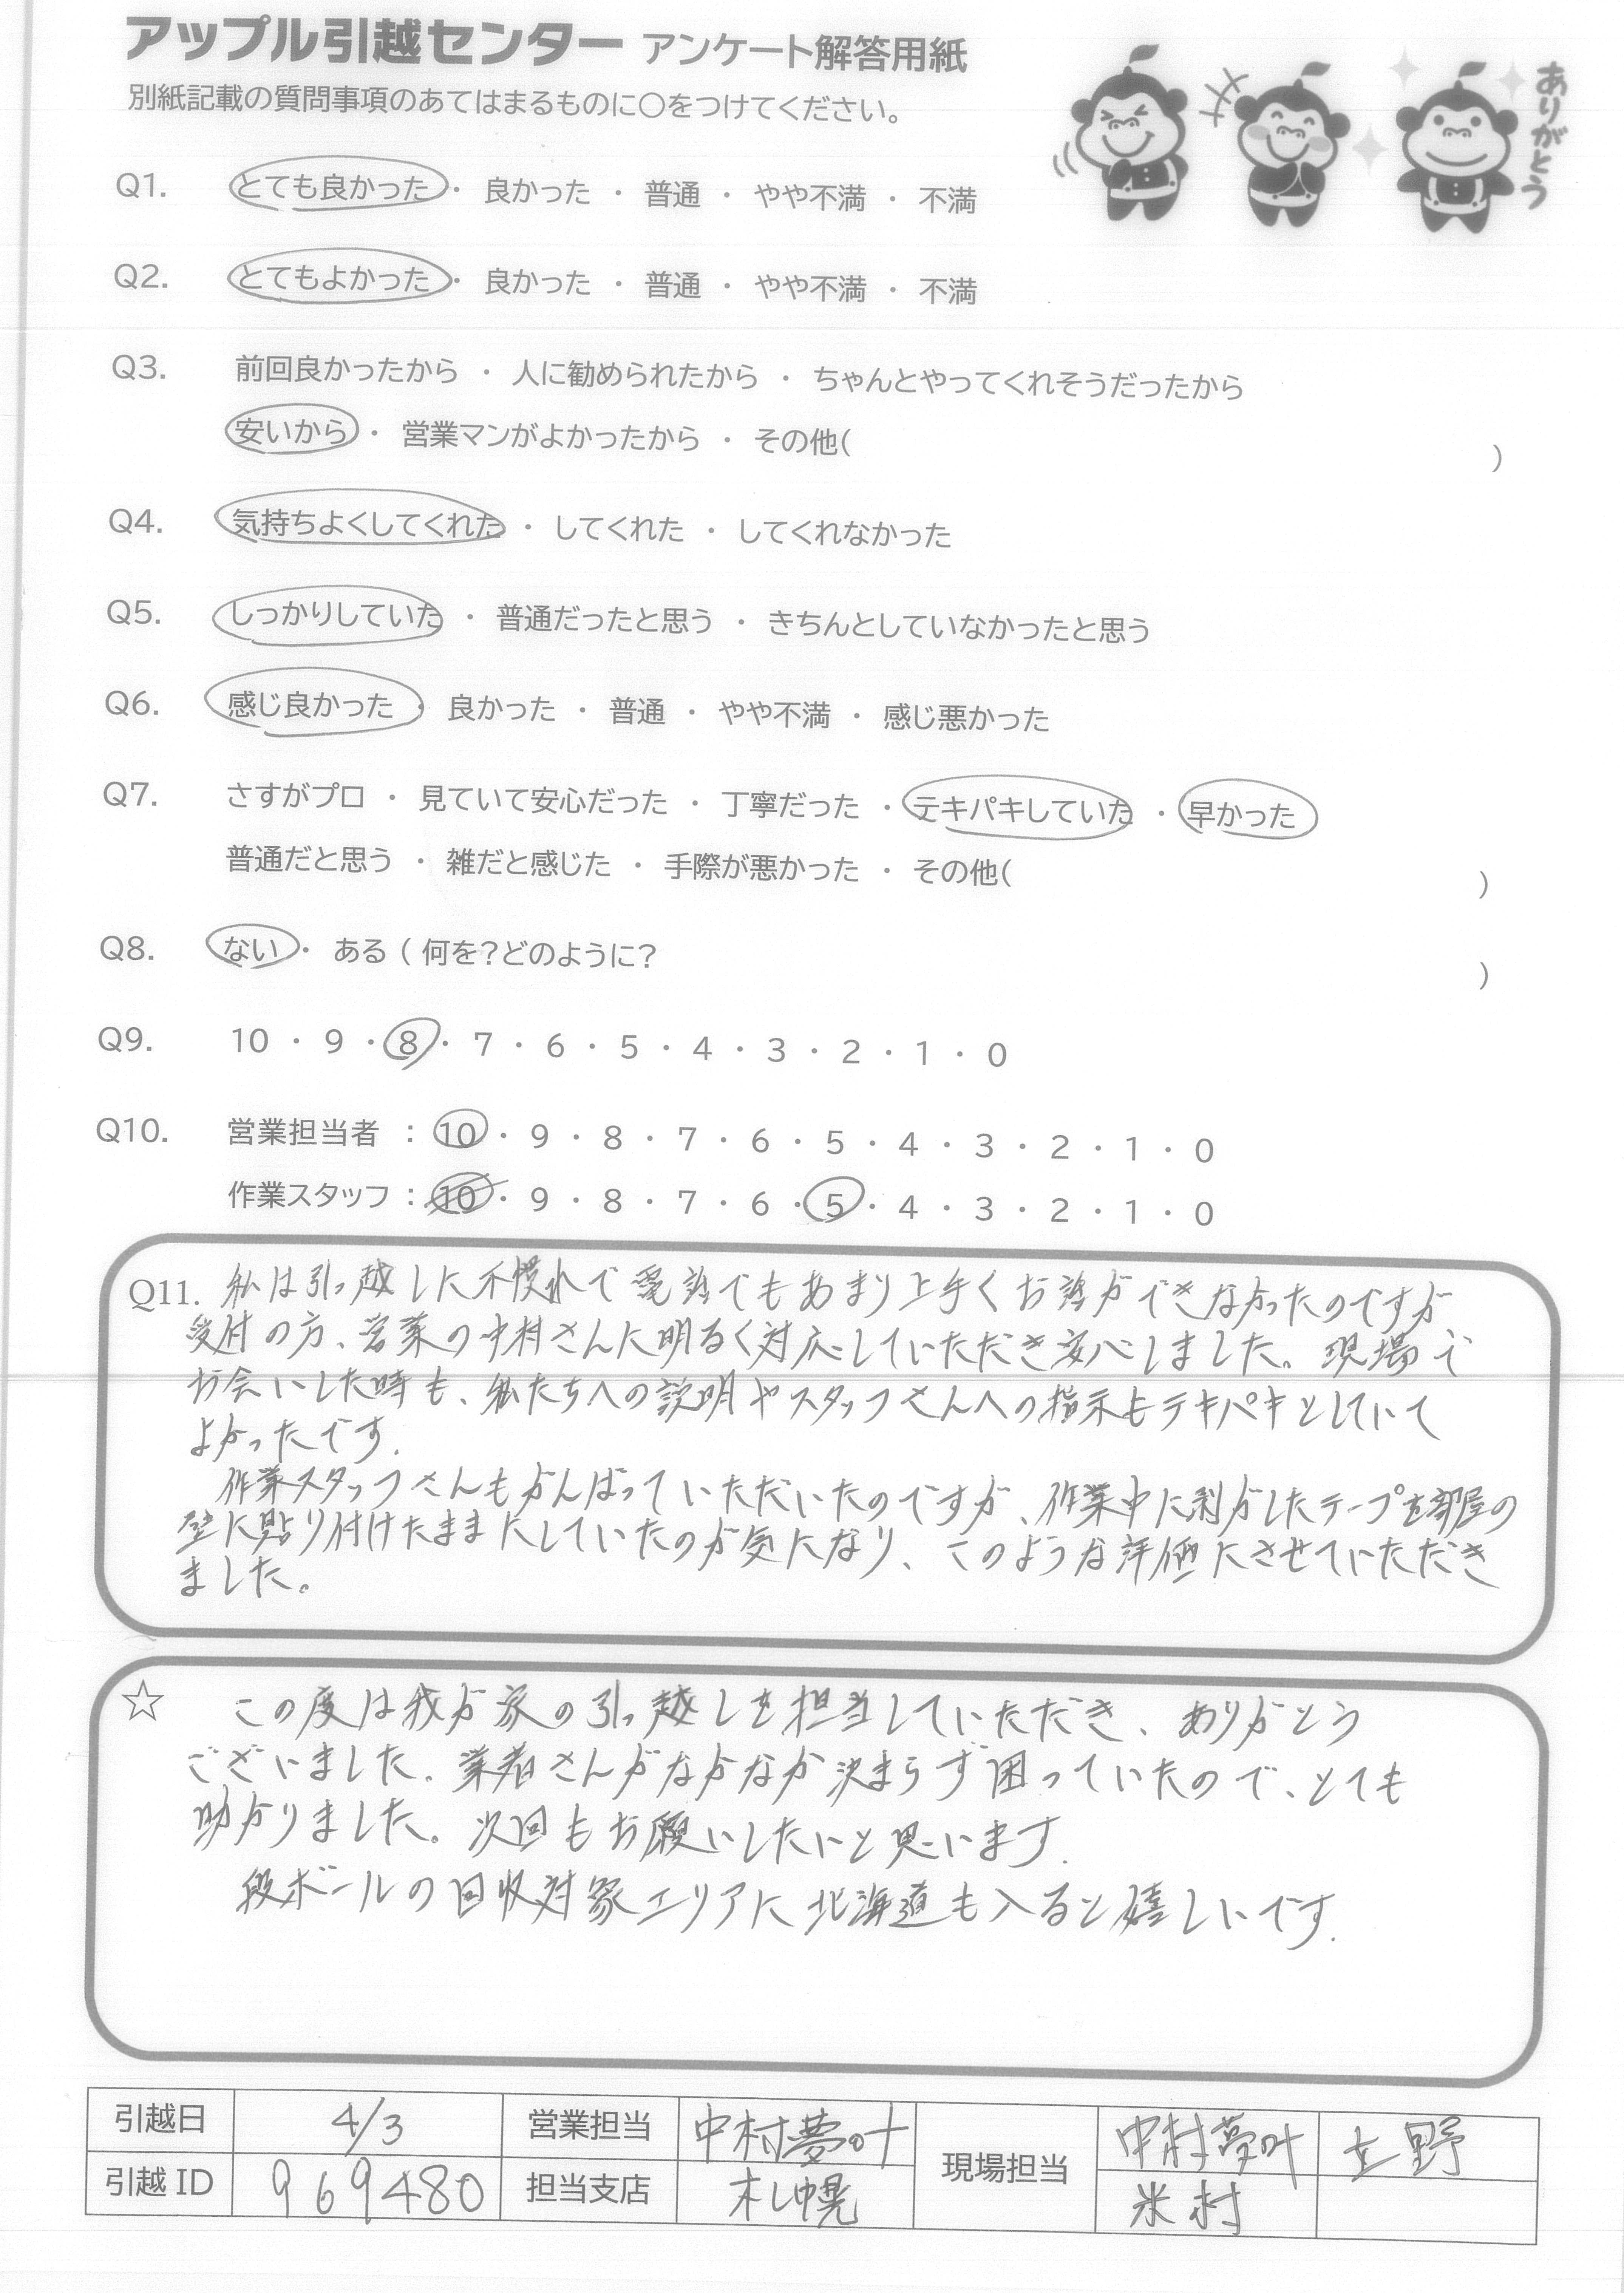 アップル引越センター アンケート解答用紙
ありがとう
別紙記載の質問事項のあてはまるものに○をつけてください。
Q1. とても良かった ・ 良かった ・ 普通 ・ やや不満 ・ 不満
Q2. とてもよかった ・ 良かった ・ 普通 ・ やや不満 ・ 不満
Q3. 前回良かったから ・ 人に勧められたから ・ ちゃんとやってくれそうだったから
安いから ・ 営業マンがよかったから ・ その他( )
Q4. 気持ちよくしてくれた ・ してくれた ・ してくれなかった
Q5. しっかりしていた ・ 普通だったと思う ・ きちんとしていなかったと思う
Q6. 感じ良かった ・ 良かった ・ 普通 ・ やや不満 ・ 感じ悪かった
Q7. さすがプロ ・ 見ていて安心だった ・ 丁寧だった ・ テキパキしていた ・ 早かった
普通だと思う ・ 雑だと感じた ・ 手際が悪かった ・ その他( )
Q8. ない ・ ある ( 何を?どのように? )
Q9. 10 ・ 9 ・ 8 ・ 7 ・ 6 ・ 5 ・ 4 ・ 3 ・ 2 ・ 1 ・ 0
Q10. 営業担当者 : 10 ・ 9 ・ 8 ・ 7 ・ 6 ・ 5 ・ 4 ・ 3 ・ 2 ・ 1 ・ 0
作業スタッフ : 10 ・ 9 ・ 8 ・ 7 ・ 6 ・ 5 ・ 4 ・ 3 ・ 2 ・ 1 ・ 0
Q11. 私は引っ越しに不慣れで電話でもあまり上手くお話ができなかったのですが
受付の方、営業の中村さんに明るく対応していただき安心しました。現場で
お会いした時も、私たちへの説明やスタッフさんへの指示もテキパキとしていて
よかったです。
作業スタッフさんもがんばっていただいたのですが、作業中に剥がしたテープを部屋の
壁に貼り付けたままにしていたのが気になり、このような評価にさせていただき
ました。
☆ この度は我が家の引っ越しを担当していただき、ありがとう
ございました。業者さんがなかなか決まらず困っていたので、とても
助かりました。次回もお願いしたいと思います。
段ボールの回収対象エリアに北海道も入ると嬉しいです。
引越日 4/3 営業担当 中村夢叶 現場担当 中村夢叶 上野
引越ID 969480 担当支店 札幌 米村